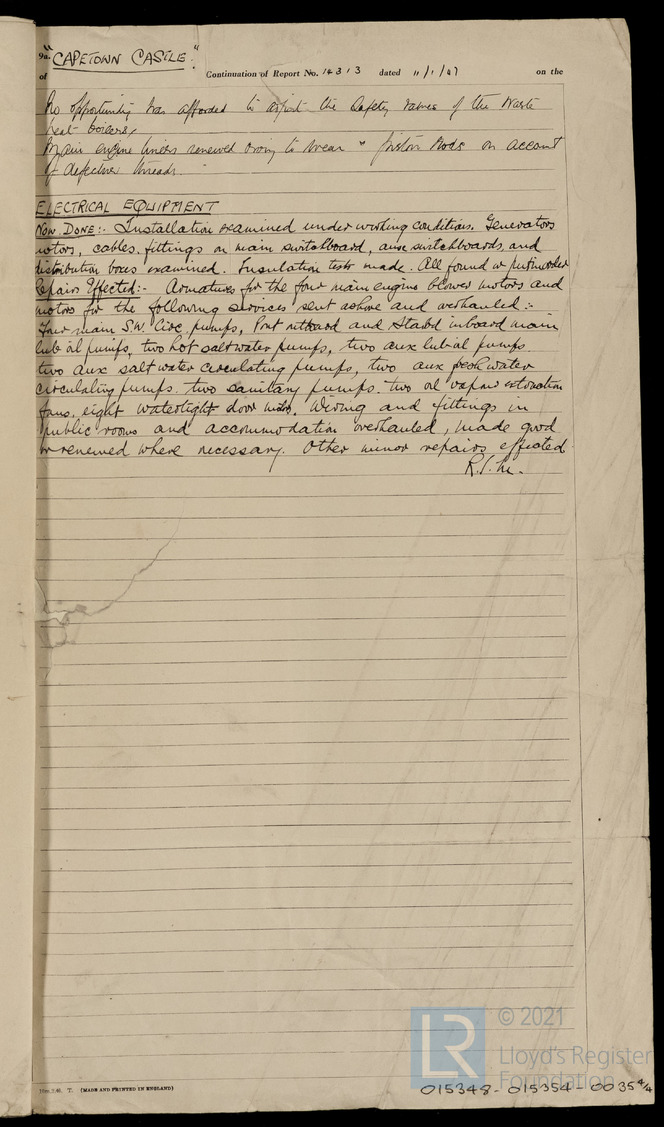 9a. "CAPETOWN CASTLE".
of Continuation of Report No. 14313 dated 11/1/47 on the
No opportunity was afforded to adjust the Safety Valves of the Waste
heat boilers,
Main engine liners renewed owing to wear " piston Rods on account
of defective threads.
ELECTRICAL EQUIPMENT
NOW DONE:- Installation examined under working conditions. Generators
motors, cables, fittings on main switchboard, aux switchboards, and
distribution boxes examined. Insulation tests made. All found or put in order
Repairs Effected:- Armatures for the four main engine blower motors and
motors for the following services sent ashore and overhauled:-
Four main S.W. Circ. pumps, Port outboard and Starbd inboard main
lub oil pumps, two hot salt water pumps, two aux lub oil pumps
two aux salt water circulating pumps, two aux fresh water
circulating pumps. two sanitary pumps. two oil vapour extraction
fans. eight watertight door motors. Wiring and fittings in
public rooms and accommodation overhauled, made good
or renewed where necessary. Other minor repairs effected
T. (MADE AND PRINTED IN ENGLAND)
LR © 2021
Lloyd's Register
Foundation
015348-015354-0035 4/4